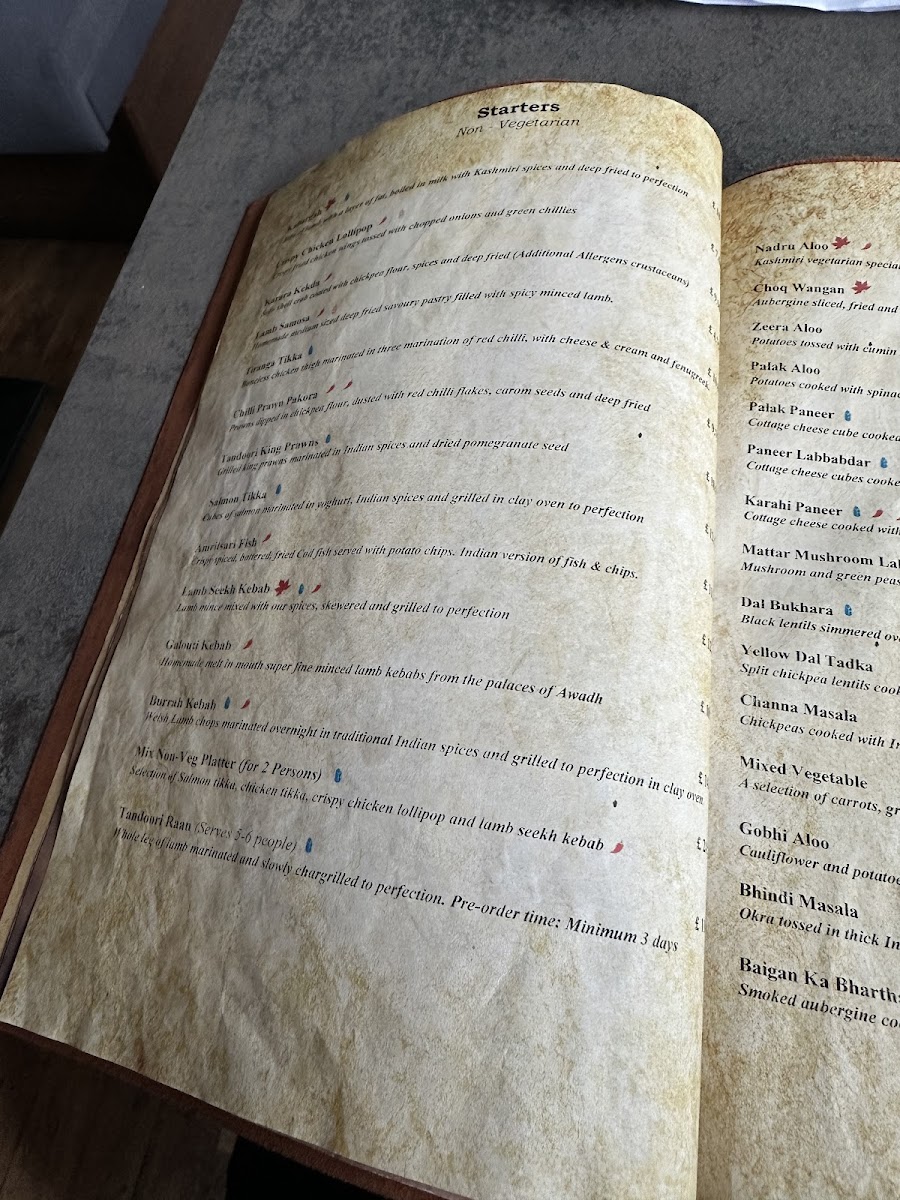 Starters
Non - Vegetarian
with a layer of fat, boiled in milk with Kashmiri spices and deep fried to perfection
Crispy Chicken Lollipop
fried chicken wings tossed with chopped onions and green chillies
Karara Kekda
Soft Shell crab coated with chickpea flour, spices and deep fried (Additional Allergens crustaceans)
Lamb Samosa
Homemade medium sized deep fried savoury pastry filled with spicy minced lamb.
Tiranga Tikka
Boneless chicken thigh marinated in three marination of red chilli, with cheese & cream and fenugreek
Chilli Prawn Pakora
Prawns dipped in chickpea flour, dusted with red chilli flakes, carom seeds and deep fried
Tandoori King Prawns
Grilled king prawns marinated in Indian spices and dried pomegranate seed
Salmon Tikka
Cubes of salmon marinated in yoghurt, Indian spices and grilled in clay oven to perfection
Amritsari Fish
Crispy spiced, battered, fried Cod fish served with potato chips. Indian version of fish & chips.
Lamb Seekh Kebab
Lamb mince mixed with our spices, skewered and grilled to perfection
Galouti Kebab
Homemade melt in mouth super fine minced lamb kebabs from the palaces of Awadh
Burrah Kebab
Welsh Lamb chops marinated overnight in traditional Indian spices and grilled to perfection in clay oven.
Mix Non-Veg Platter (for 2 Persons)
Selection of Salmon tikka, chicken tikka, crispy chicken lollipop and lamb seekh kebab
Tandoori Raan (Serves 5-6 people)
Whole leg of lamb marinated and slowly chargrilled to perfection. Pre-order time: Minimum 3 days
Nadru Aloo
Kashmiri vegetarian
Choq Wangan
Aubergine sliced, fried and
Zeera Aloo
Potatoes tossed with cumin
Palak Aloo
Potatoes cooked with
Palak Paneer
Cottage cheese cube cooked
Paneer Labbabdar
Cottage cheese cubes
Karahi Paneer
Cottage cheese cooked with
Mattar Mushroom
Mushroom and green peas
Dal Bukhara
Black lentils simmered
Yellow Dal Tadka
Split chickpea lentils
Channa Masala
Chickpeas cooked with
Mixed Vegetable
A selection of carrots,
Gobhi Aloo
Cauliflower and
Bhindi Masala
Okra tossed in thick
Baigan Ka
Smoked aubergine